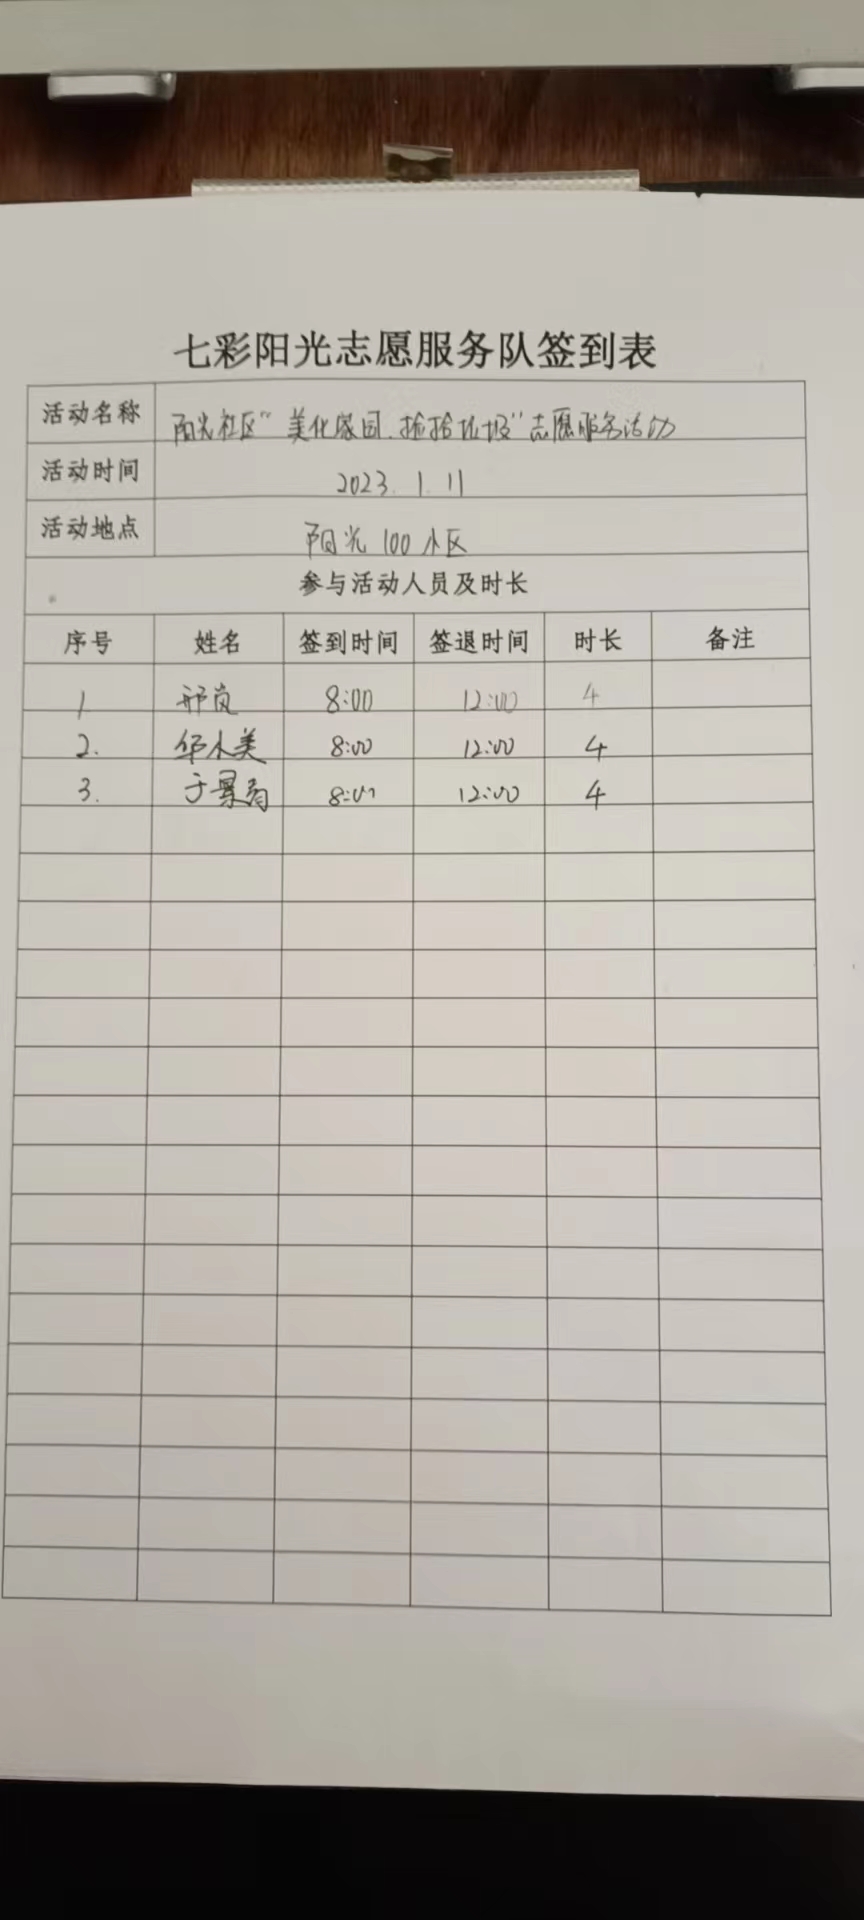 七彩阳光志愿服务队签到表
活动名称 阳光社区“美化家园、捡拾垃圾”志愿服务活动
活动时间 2023.1.11
活动地点 阳光100小区
参与活动人员及时长
序号 姓名 签到时间 签退时间 时长 备注
1 邢岚 8:00 12:00 4
2. 华小美 8:00 12:00 4
3. 于景 8:00 12:00 4